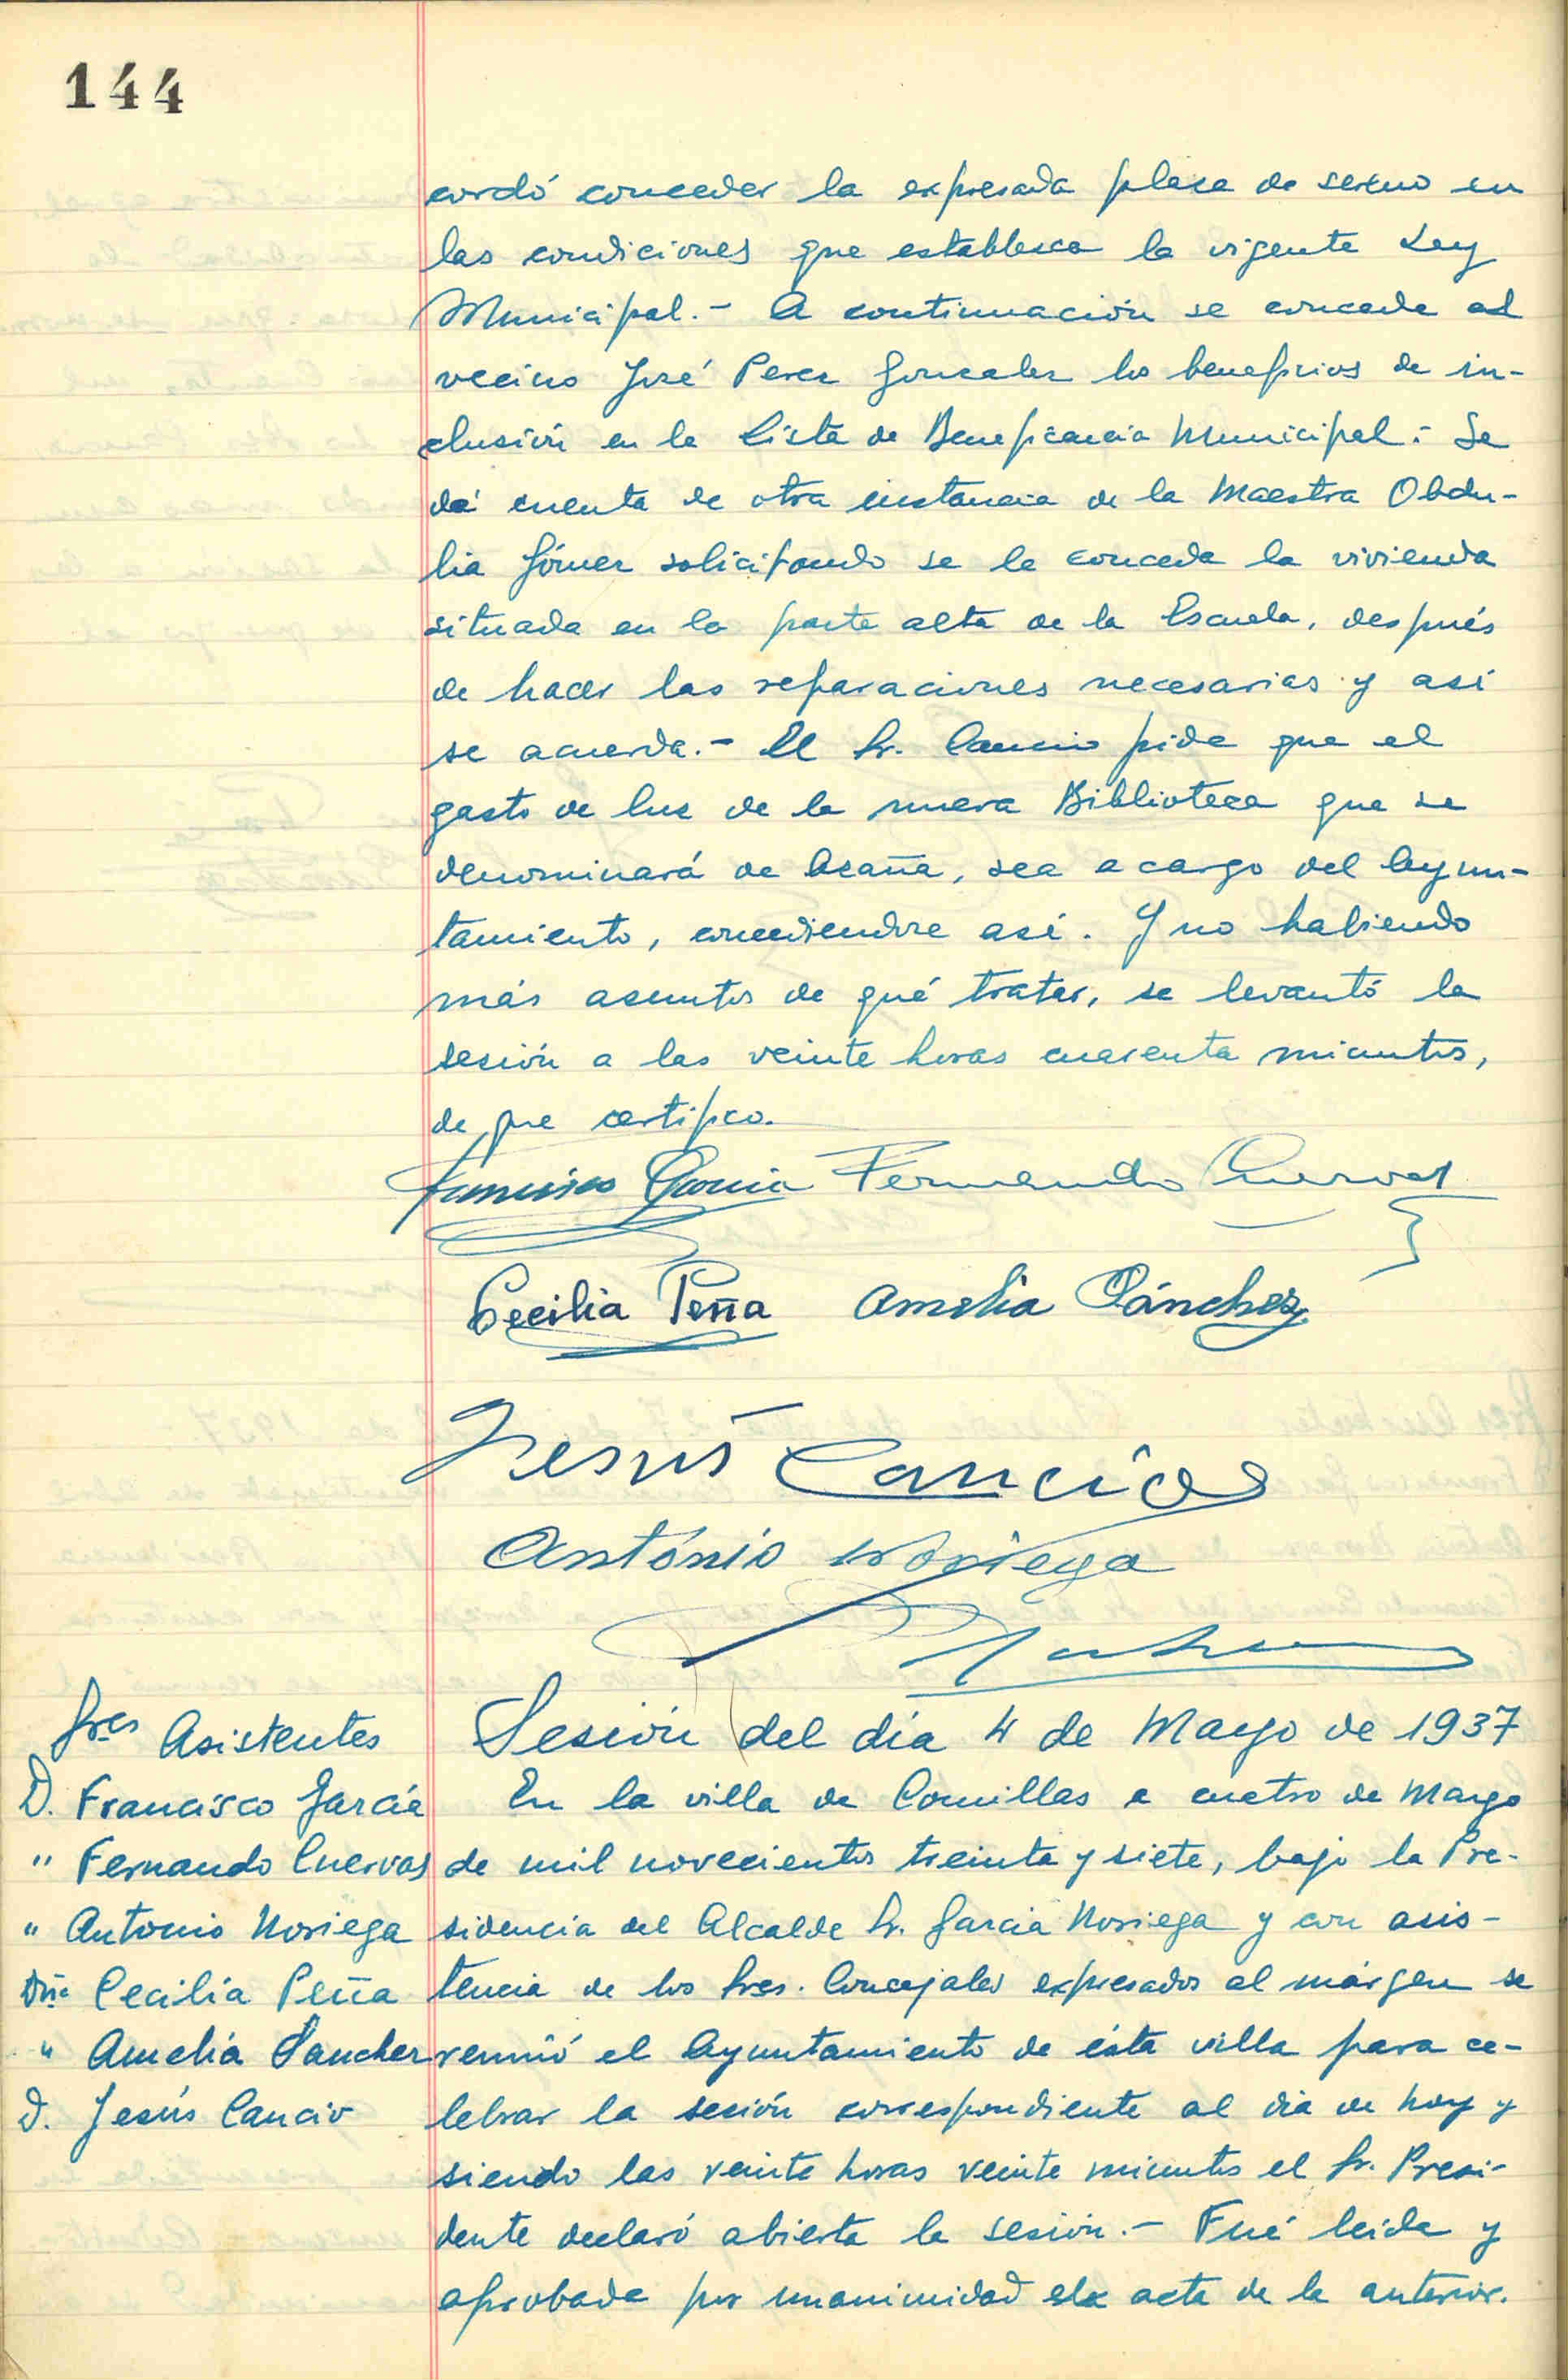 144
cordó conceder la expresada plaza de sereno en
las condiciones que establezca la vigente Ley
Municipal.- A continuación se concede al
vecino José Perez Gonzalez los beneficios de in-
clusión en la Lista de Beneficencia Municipal.- Se
dá cuenta de otra instancia de la Maestra Obdu-
lia Gómez solicitando se le conceda la vivienda
situada en la parte alta de la Escuela, después
de hacer las reparaciones necesarias y asi
se acuerda.- El Sr. Cancio pide que el
gasto de luz de la nueva Biblioteca que se
denominará de Azaña, sea a cargo del Ayun-
tamiento, concediendose asi. Y no habiendo
más asuntos de qué tratar, se levantó la
sesión a las veinte horas cuarenta minutos,
de que certifico.
Francisco Garcia Fernando Cuervas
Cecilia Peña Amelia Sánchez
Jesús Cancio
António Noriega
Sres Asistentes
D. Francisco García
" Fernando Cuervas
" Antonio Noriega
Dñª Cecilia Peña
" Amelia Sanchez
D. Jesús Cancio
Sesión del día 4 de Mayo de 1937
En la villa de Comillas a cuatro de Mayo
de mil novecientos treinta y siete, bajo la Pre-
sidencia del Alcalde Sr. Garcia Noriega y con asis-
tencia de los Sres. Concejales expresados al márgen se
reunió el Ayuntamiento de ésta villa para ce-
lebrar la sesión correspondiente al dia de hoy y
siendo las veinte horas veinte minutos el Sr. Presi-
dente declaró abierta la sesión.- Fué leida y
aprobada por unanimidad el acta de la anterior.